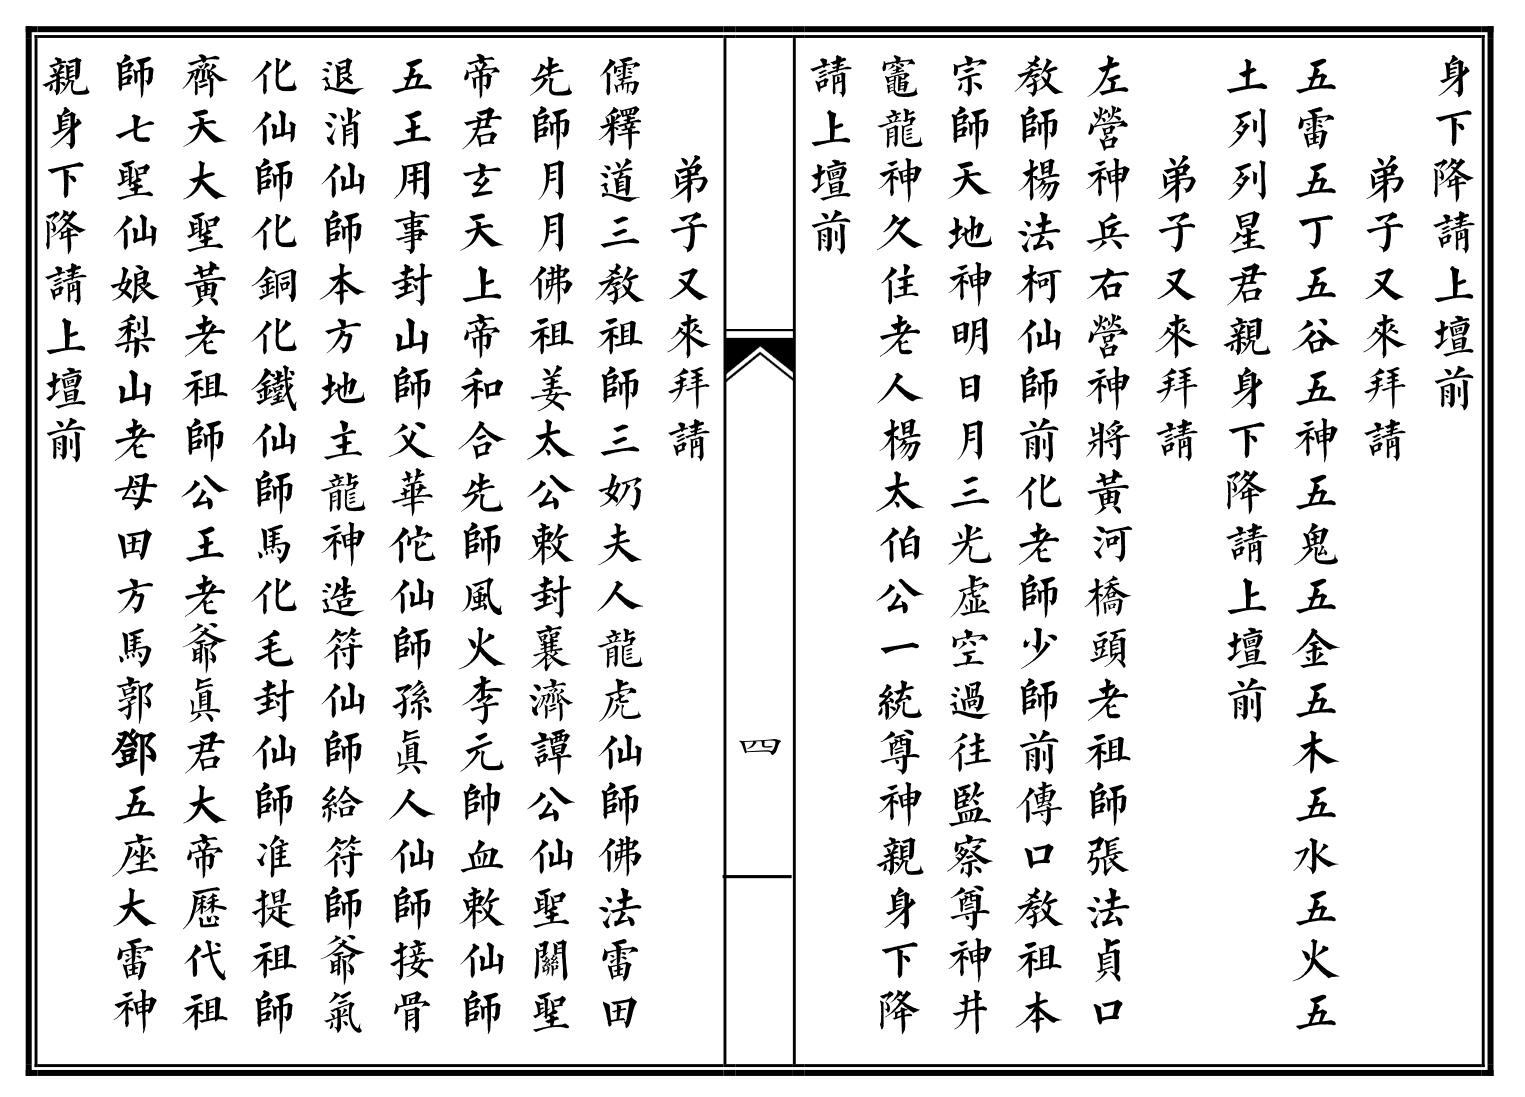 身下降請上壇前
弟子又來拜請
五雷五丁五谷五神五鬼五金五木五水五火五
土列列星君親身下降請上壇前
弟子又來拜請
左營神兵右營神將黃河橋頭老祖師張法貞口
教師楊法柯仙師前化老師少師前傳口教祖本
宗師天地神明日月三光虛空過往監察尊神井
竈龍神久住老人楊太伯公一統尊神親身下降
請上壇前
四
弟子又來拜請
儒釋道三教祖師三奶夫人龍虎仙師佛法雷田
先師月月佛祖姜太公敕封襄濟譚公仙聖關聖
帝君玄天上帝和合先師風火李元帥血敕仙師
五王用事封山師父華佗仙師孫眞人仙師接骨
退消仙師本方地主龍神造符仙師給符師爺氣
化仙師化銅化鐵仙師馬化毛封仙師准提祖師
齊天大聖黃老祖師公王老爺眞君大帝歷代祖
師七聖仙娘梨山老母田方馬郭鄧五座大雷神
親身下降請上壇前